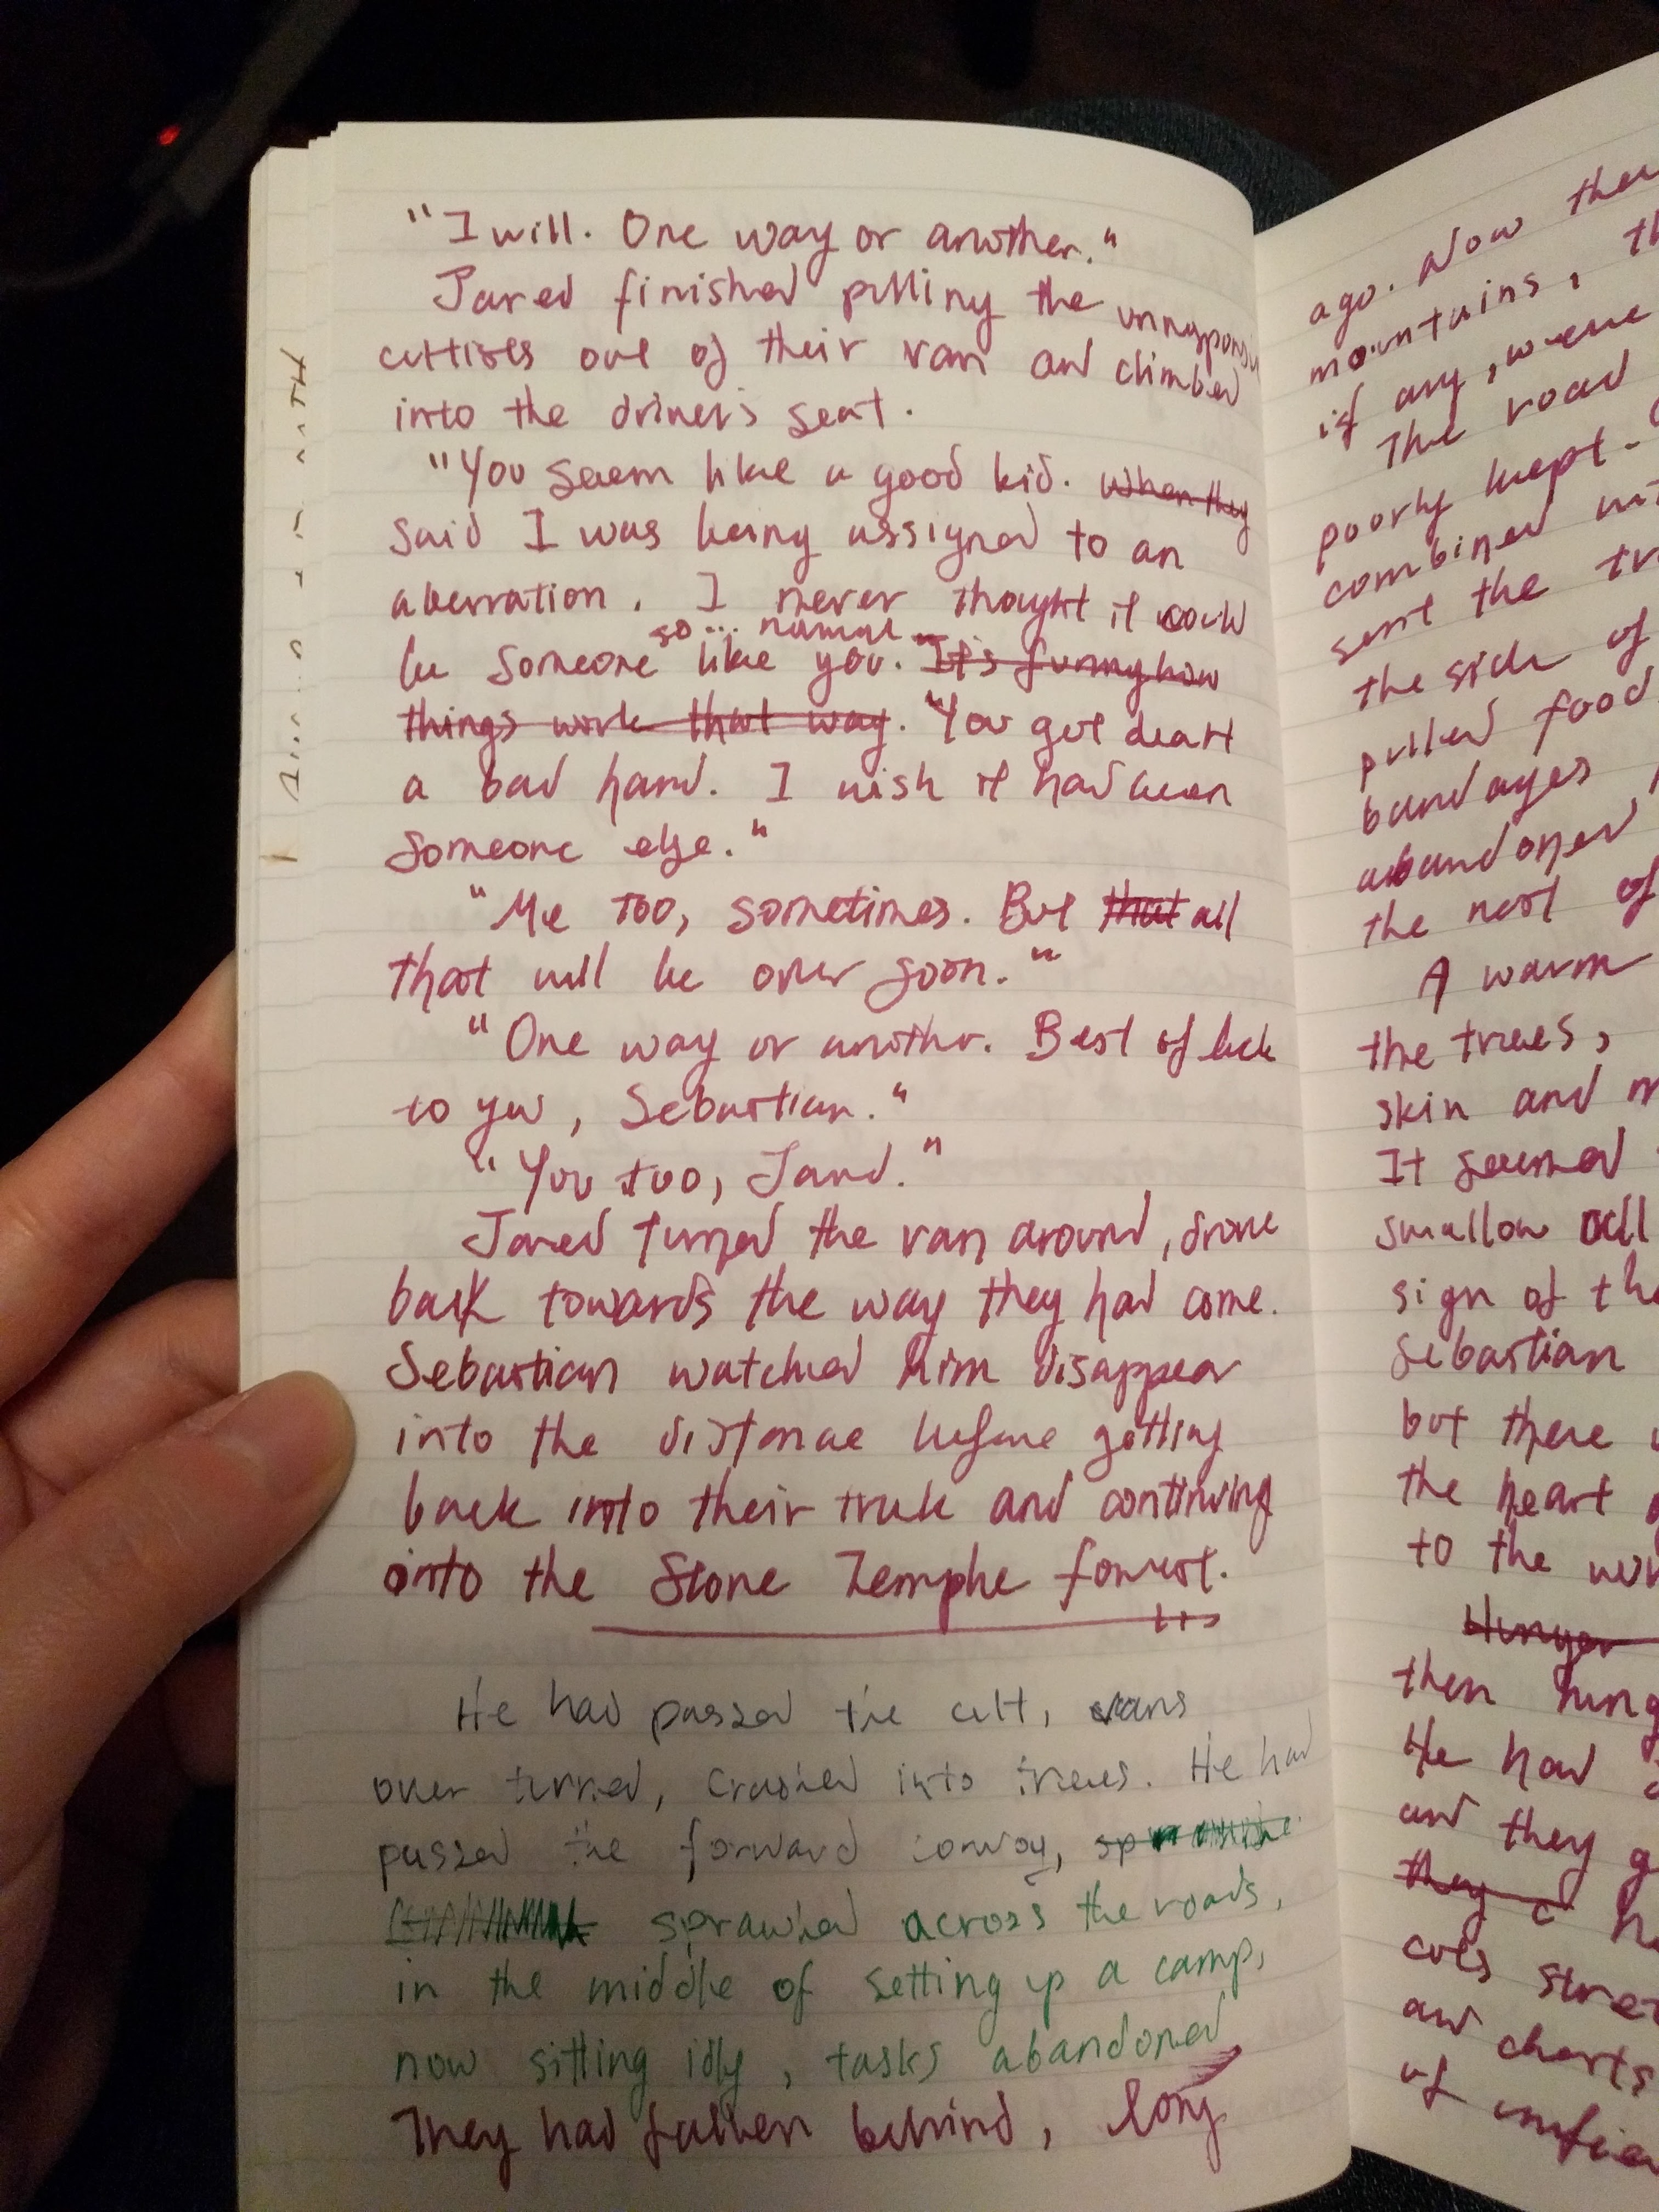 "I will. One way or another."
Jared finished pulling the unresponsive
cultists out of their van and climbed
into the driver's seat.
"You seem like a good kid. When they
said I was being assigned to an
aberration, I never thought it could
so... normal
be someone like you. It's funny how
things work that way. "You got dealt
a bad hand. I wish it had been
someone else."
"Me too, sometimes. But that all
that will be over soon."
"One way or another. Best of luck
to you, Sebastian."
"You too, Jared."
Jared turned the van around, drove
back towards the way they had come.
Sebastian watched him disappear
into the distance before getting
back into their truck and continuing
into the Stone Temple forest.
He had passed the cult, vans
over turned, crashed into trees. He had
passed the forward convoy,
sprawled across the roads,
in the middle of setting up a camp,
now sitting idly, tasks abandoned
They had fallen behind, long
ago. Now
mountains,
if any, were
The road
poorly kept.
combined
sent the
the side of
pulled food
bandages
abandoned,
the rest of
A warm
the trees,
skin and
It seemed
swallow all
sign of
Sebastian
but there
the heart
to the
Hunger
then
He had
and they
they
cuts
and charts
of